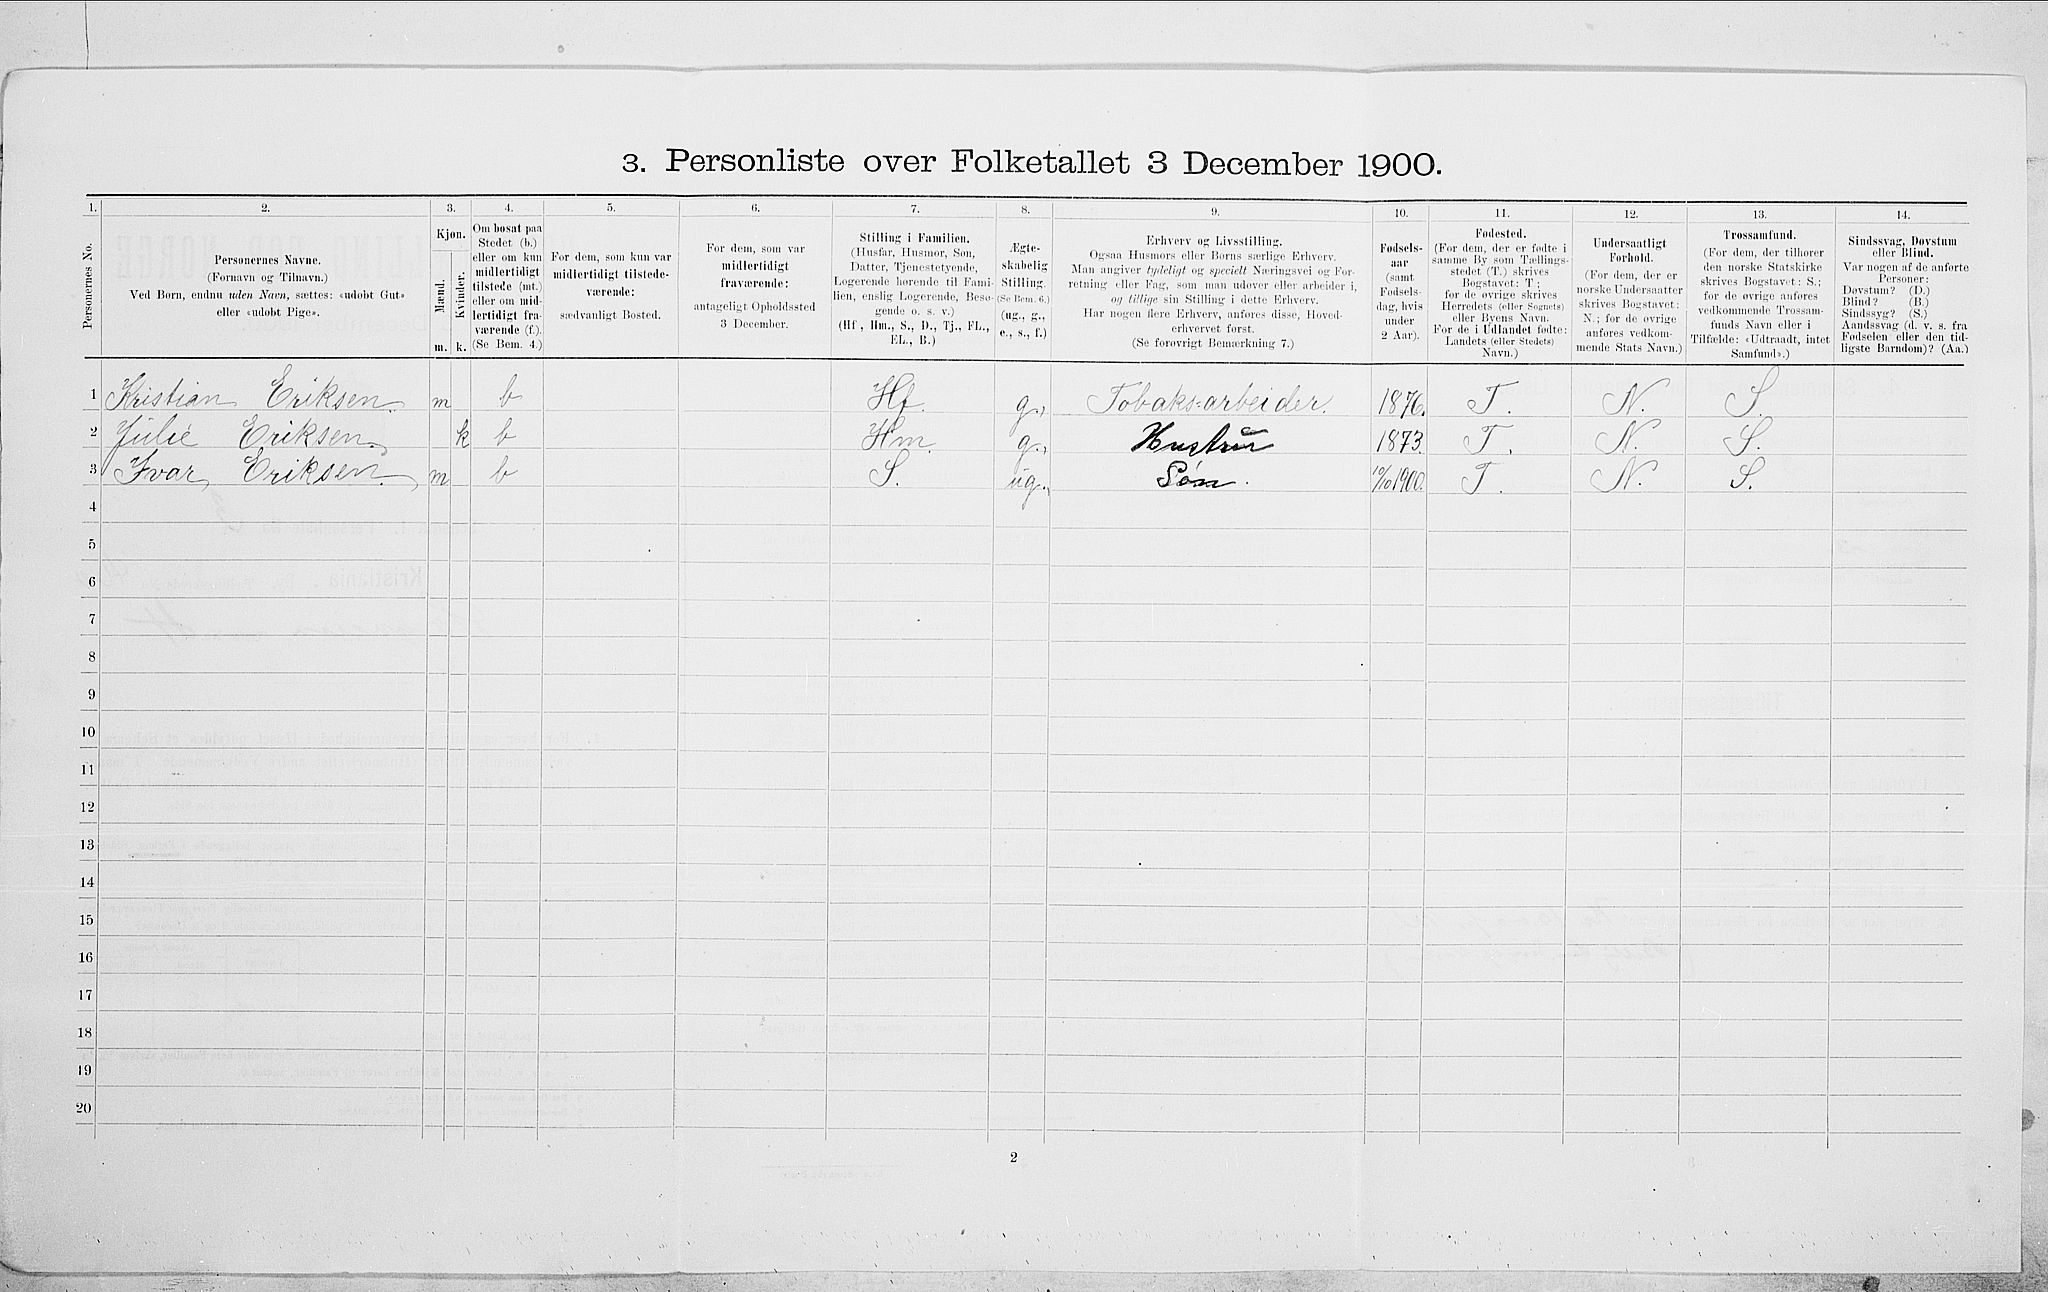 3. Personliste over Folketallet 3 December 1900.
1. 2. 3. 4. 5. 6. 7. 8. 9. 10. 11. 12. 13. 14.
Personernes No.
Personernes Navne.
(Fornavn og Tilnavn.)
Ved Børn, endnu uden Navn, sættes: «udøbt Gut»
eller «udøbt Pige».
Kjøn.
Mænd.
Kvinder.
m. k.
Om bosat paa
Stedet (b.)
eller om kun
midlertidigt
tilstede (mt.)
eller om mid-
lertidigt fra-
værende (f.).
(Se Bem. 4.)
For dem, som kun var
midlertidigt tilstede-
værende:
sædvanligt Bosted.
For dem, som var
midlertidigt
fraværende:
antageligt Opholdssted
3 December.
Stilling i Familien.
(Husfar, Husmor, Søn,
Datter, Tjenestetyende,
Logerende hørende til Fami-
lien, enslig Logerende, Besø-
gende o. s. v.)
(Hf., Hm., S., D., Tj., FL.,
EL., B.)
Ægte-
skabelig
Stilling.
(Se Bem. 6.)
(ug., g.,
e., s., f.)
Erhverv og Livsstilling.
Ogsaa Husmors eller Børns særlige Erhverv.
Man angiver tydeligt og specielt Næringsvei og For-
retning eller Fag, som man udøver eller arbeider i,
og tillige sin Stilling i dette Erhverv.
Har nogen flere Erhverv, anføres disse, Hoved-
erhvervet først.
(Se forøvrigt Bemærkning 7.)
Fødsels-
aar
(samt
Fødsels-
dag, hvis
under
2 Aar).
Fødested.
(For dem, der er fødte i
samme By som Tællings-
stedet (T.) skrives
Bogstavet: T;
for de øvrige skrives
Herredets (eller Sognets)
eller Byens Navn.
For de i Udlandet fødte:
Landets (eller Stedets)
Navn.)
Undersaatligt
Forhold.
(For dem, der er
norske Undersaatter
skrives Bogstavet:
N.; for de øvrige
anføres vedkom-
mende Stats Navn.)
Trossamfund.
(For dem, der tilhører
den norske Statskirke
skrives Bogstavet: S.;
for de øvrige anføres
vedkommende Trossam-
funds Navn eller i
Tilfælde: «Udtraadt, intet
Samfund».)
Sindssvag, Døvstum
eller Blind.
Var nogen af de anførte
Personer:
Døvstum? (D.)
Blind? (B.)
Sindssyg? (S.)
Aandssvag (d. v. s. fra
Fødselen eller den tid-
ligste Barndom)? (Aa.)
1 Kristian Eriksen. m b Hf. g., Tobaks-arbeider. 1876. T. N. S.
2 Julie Eriksen. k b Hm. g., Hustru 1873. T. N. S.
3 Ivar Eriksen. m b S. ug., Søn. 10/10 1900. T. N. S.
4
5
6
7
8
9
10
11
12
13
14
15
16
17
18
19
20
2